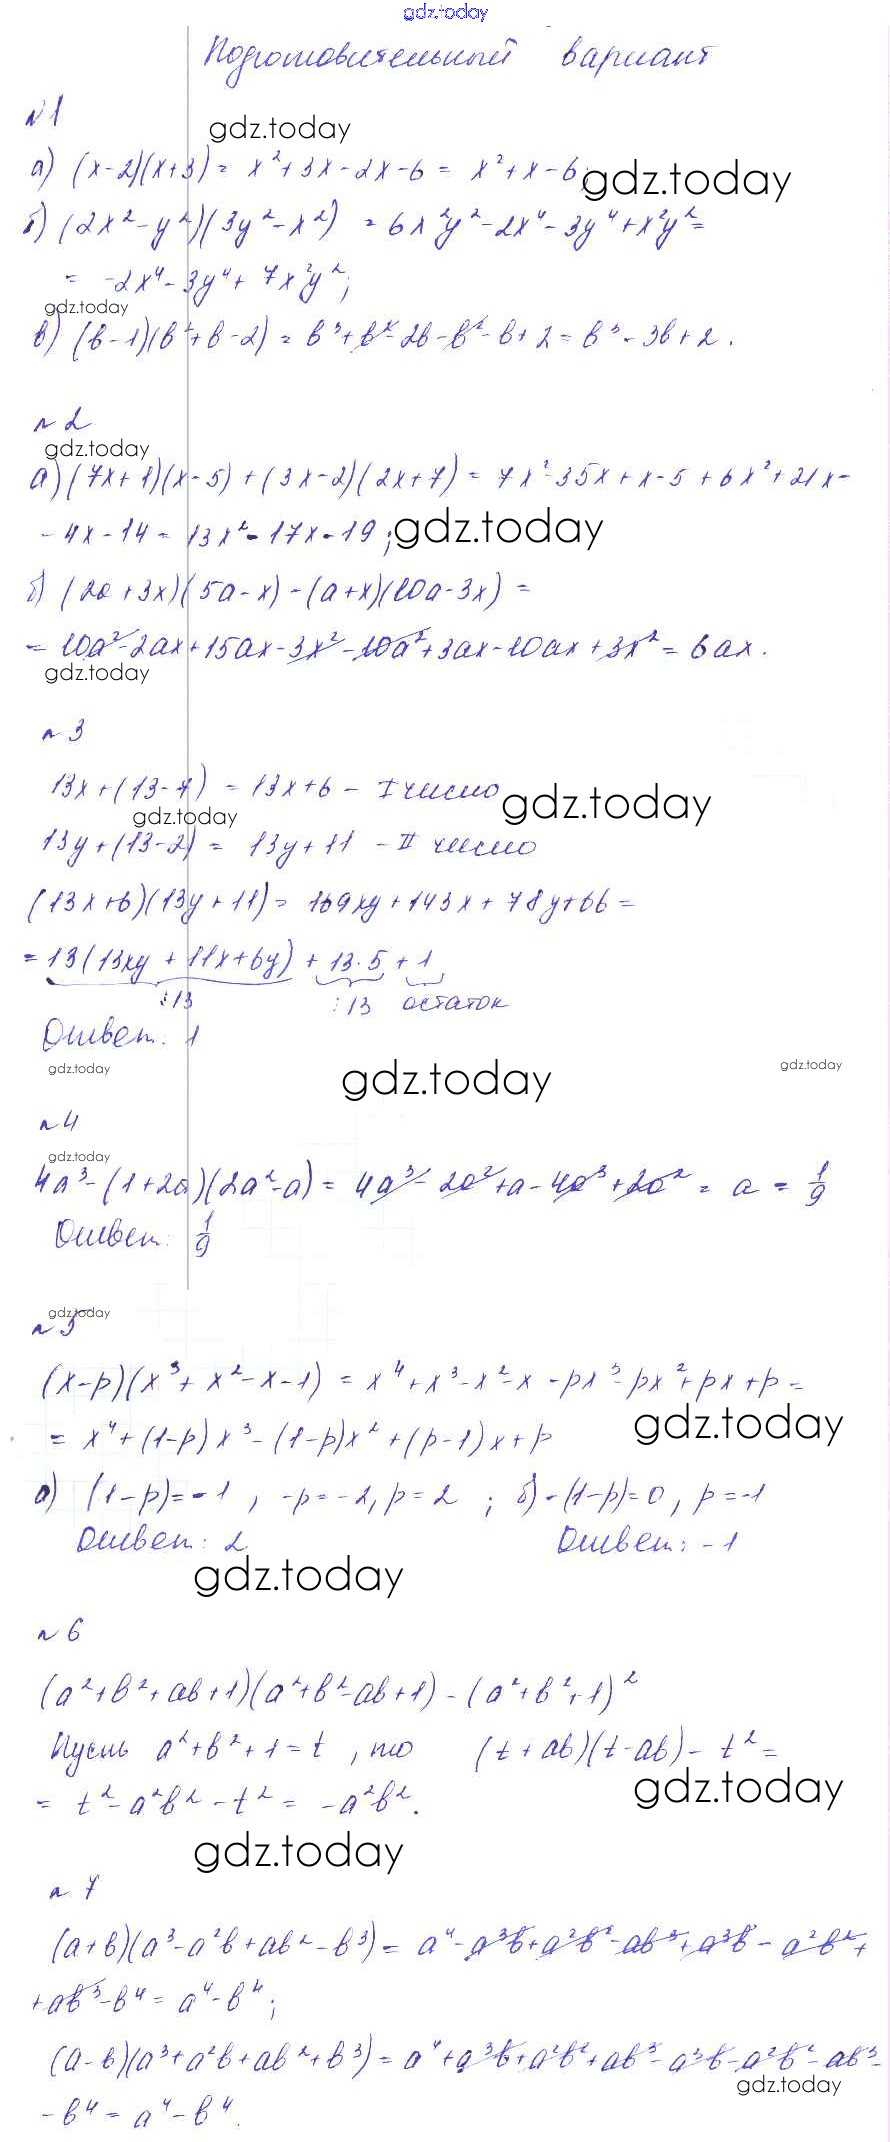 gdz.today
Подготовительный вариант
№1
gdz.today
а) (x-2)(x+3) = x²+3x-2x-6 = x²+x-6;
gdz.today
б) (2x²-y²)(3y²-x²) = 6x²y²-2x⁴-3y⁴+x²y²=
= -2x⁴-3y⁴+7x²y²;
gdz.today
в) (b-1)(b²+b-2) = b³+b²-2b-b²-b+2 = b³-3b+2.
№2
gdz.today
а) (7x+1)(x-5)+(3x-2)(2x+7) = 7x²-35x+x-5+6x²+21x-
-4x-14 = 13x²-17x-19;
gdz.today
б) (2a+3x)(5a-x)-(a+x)(10a-3x) =
= 10a²-2ax+15ax-3x²-10a²+3ax-10ax+3x² = 6ax.
gdz.today
№3
13x+(13-7) = 13x+6 - I число
gdz.today
gdz.today
13y+(13-2) = 13y+11 - II число
(13x+6)(13y+11) = 169xy+143x+78y+66 =
= 13(13xy+11x+6y) + 13·5 + 1
⋮13 ⋮13 остаток
Ответ: 1
gdz.today
gdz.today
gdz.today
№4
gdz.today
4a³-(1+2a)(2a²-a) = 4a³-2a²+a-4a³+2a² = a = 1/9
Ответ: 1/9
gdz.today
№5
(x-p)(x³+x²-x-1) = x⁴+x³-x²-x-px³-px²+px+p =
= x⁴+(1-p)x³-(1-p)x²+(p-1)x+p
gdz.today
а) (1-p)=-1, -p=-2, p=2; б) -(1-p)=0, p=-1
Ответ: 2 Ответ: -1
gdz.today
№6
(a²+b²+ab+1)(a²+b²-ab+1)-(a²+b²+1)²
Пусть a²+b²+1=t, то (t+ab)(t-ab)-t² =
= t²-a²b²-t² = -a²b².
gdz.today
gdz.today
№7
(a+b)(a³-a²b+ab²-b³) = a⁴-a³b+a²b²-ab³+a³b-a²b²+
+ab³-b⁴ = a⁴-b⁴;
(a-b)(a³+a²b+ab²+b³) = a⁴+a³b+a²b²+ab³-a³b-a²b²-ab³-
gdz.today
-b⁴ = a⁴-b⁴.